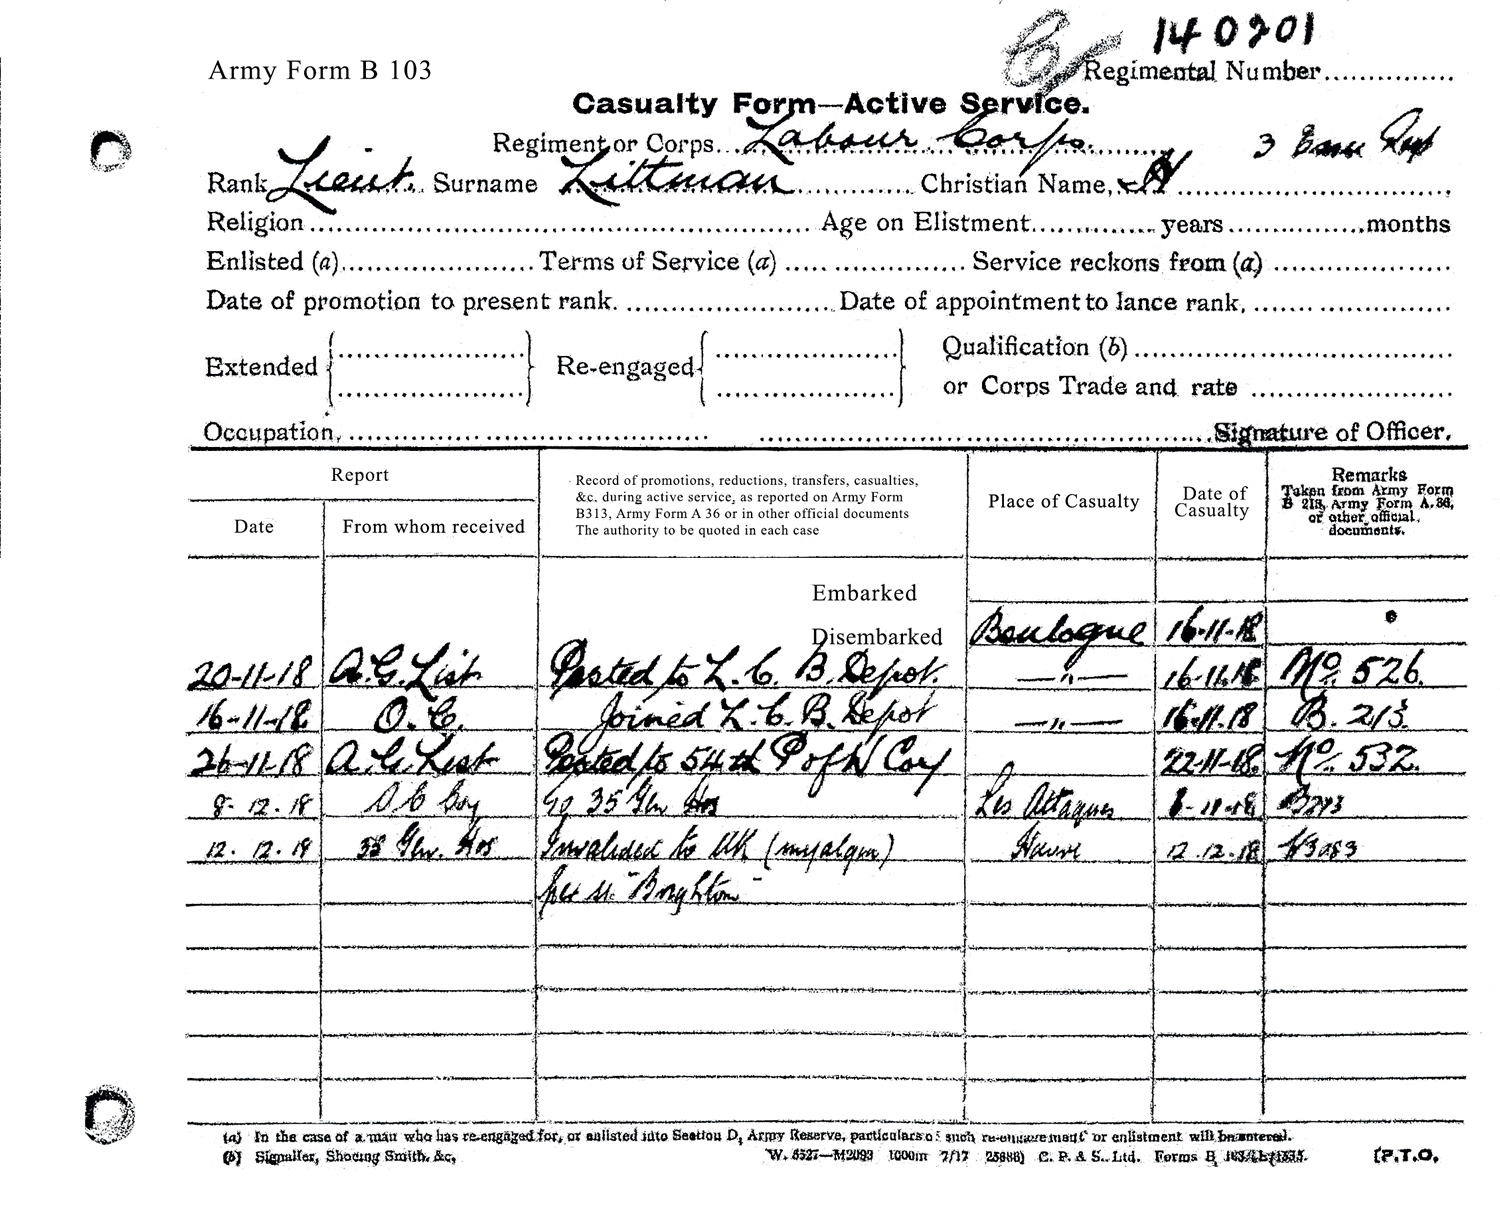 140201
Army Form B 103
Regimental Number
Casualty Form—Active Service.
Regiment or Corps Labour Corps 3
Rank Lieut. Surname Littman Christian Name, H
Religion Age on Elistment years months
Enlisted (a) Terms of Service (a) Service reckons from (a)
Date of promotion to present rank. Date of appointment to lance rank,
Extended Re-engaged Qualification (b)
or Corps Trade and rate
Occupation, Signature of Officer.
Report
Date
From whom received
Record of promotions, reductions, transfers, casualties,
&c. during active service, as reported on Army Form
B313, Army Form A 36 or in other official documents
The authority to be quoted in each case
Place of Casualty
Date of
Casualty
Remarks
Taken from Army Form
B 213, Army Form A.36,
or other official,
documents.
Embarked
Disembarked Boulogne 16-11-18
20-11-18 A.G. List Posted to L.C.B. Depot. —„— 16-11-18 No. 526.
16-11-18 O.C. Joined L.C.B. Depot —„— 16-11-18 B. 213.
26-11-18 A.G. List Posted to 54th P of W Coy 22-11-18. No. 532.
8-12-18 O C Coy To 35 Gen Hos Les Attaques -11-18 B213
12.12.18 35 Gen. Hos Invalided to UK (myalgia) Havre 12.12.18 W3083
per "Brighton"
(a) In the case of a man who has re-engaged for, or enlisted into Section D, Army Reserve, particulars of such re-engagement or enlistment will be entered.
(b) Signaller, Shoeing Smith, &c,
W. 6527—M2093 1000m 7/17 C. P. & S. Ltd. Forms B. [P.T.O.